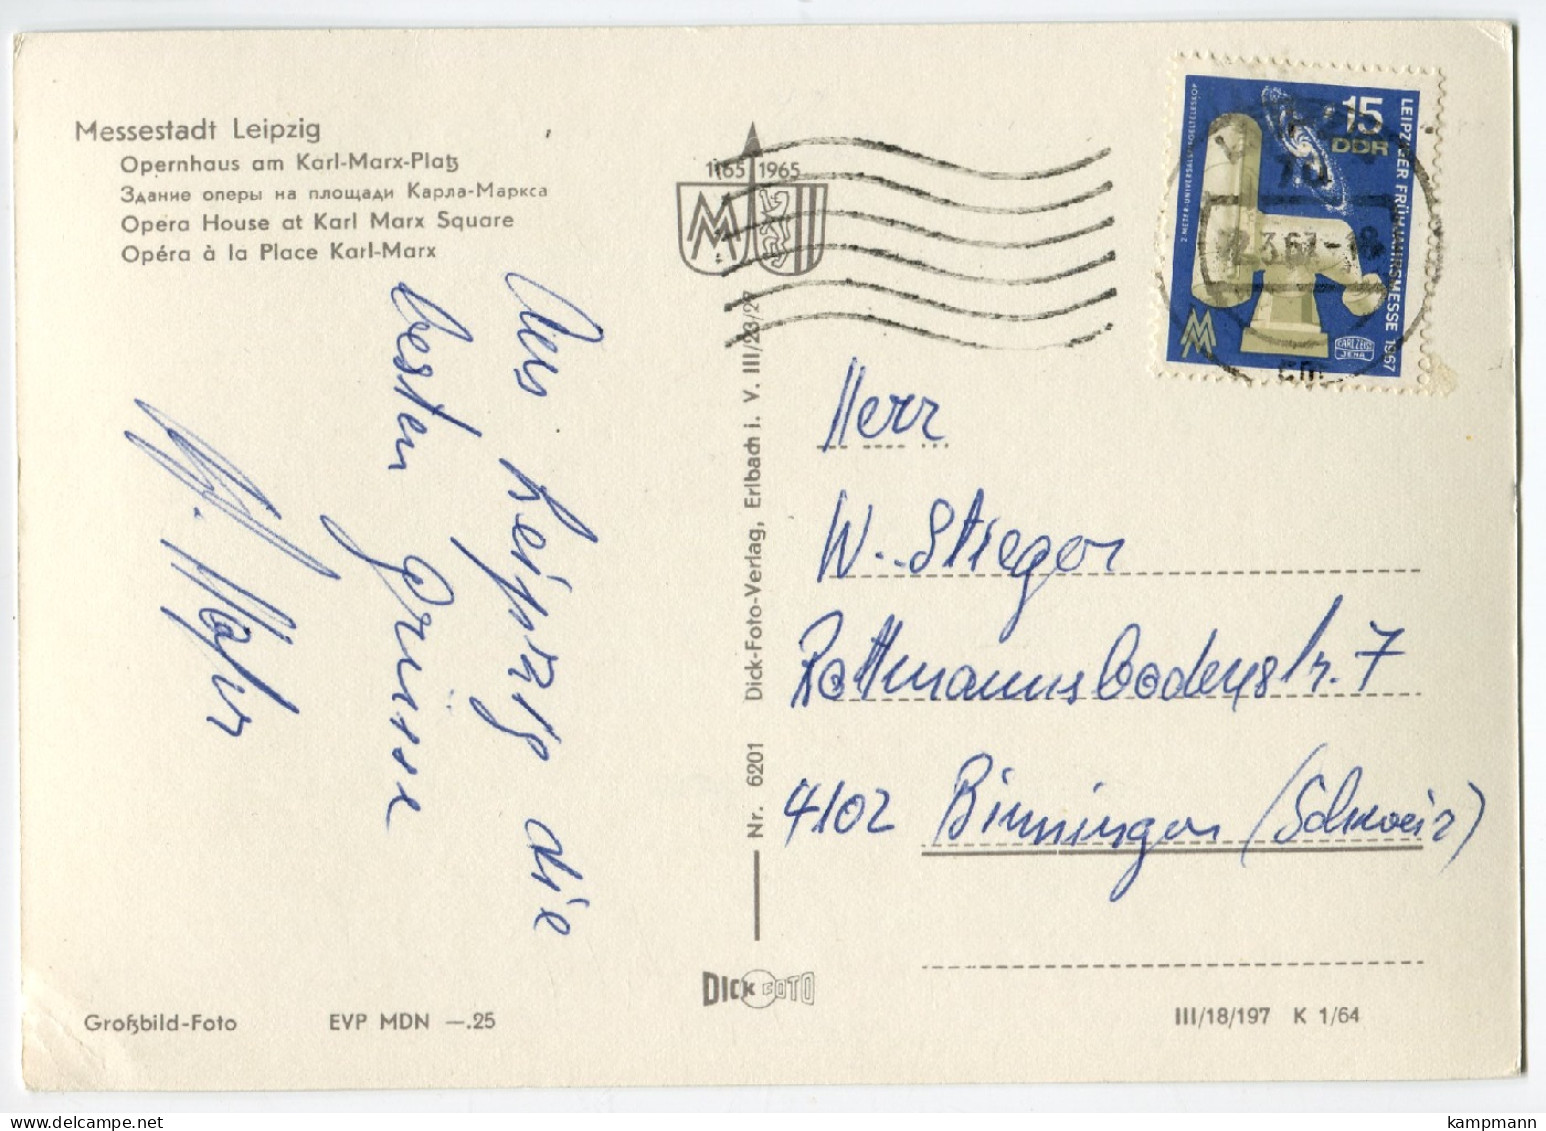 Messestadt Leipzig
Opernhaus am Karl-Marx-Platz
Здание оперы на площади Карла-Маркса
Opera House at Karl Marx Square
Opéra à la Place Karl-Marx
1165 1965
MM
15
DDR
LEIPZIGER FRÜHJAHRSMESSE 1967
2-METER-UNIVERSAL-SPIEGELTELESKOP
MM
CARL ZEISS
JENA
.3.67-18
Aus Leipzig die
besten Grüsse
Herr
W. Stieger
Rottmannsbodenstr. 7
4102 Binningen (Schweiz)
Nr. 6201 Dick-Foto-Verlag, Erlbach i. V. III/23/27
DICK FOTO
Großbild-Foto EVP MDN —.25
III/18/197 K 1/64
kampmann